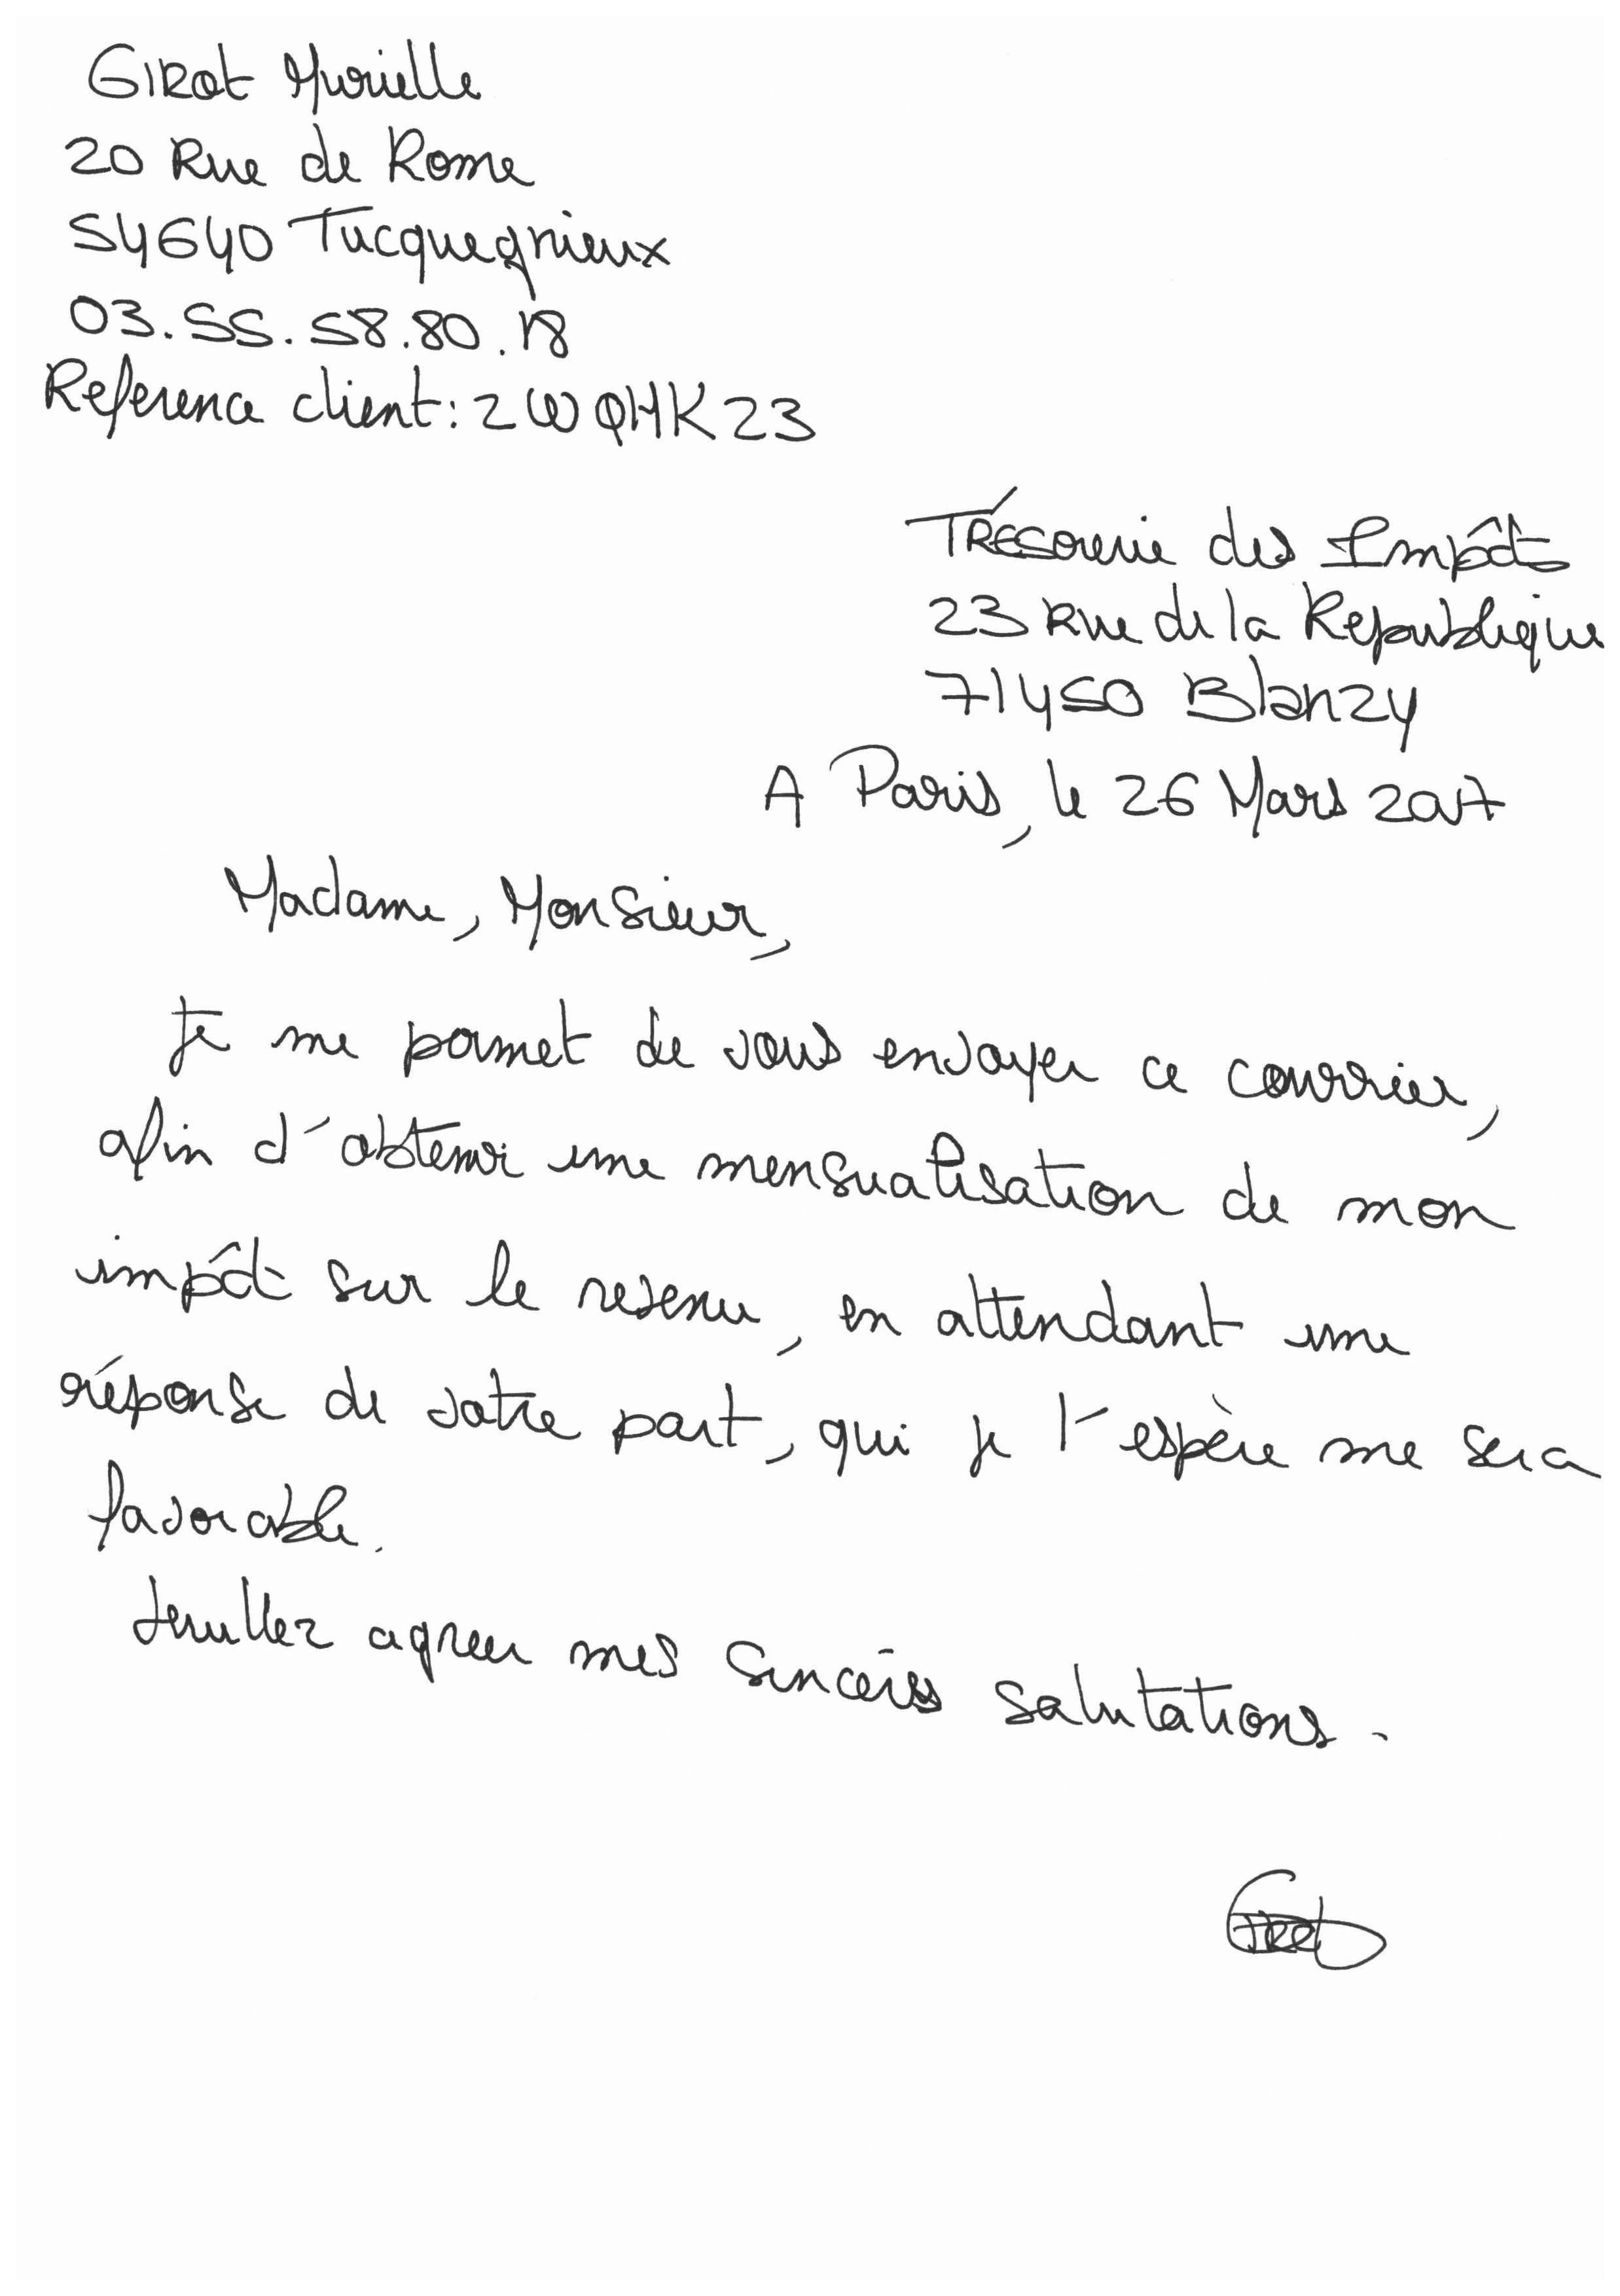 GIRot Murielle
20 Rue de Rome
54640 Tucquegnieux
03.55.58.80.18
Reference client: 2WQHK23
TRÉSorerie des Impôts
23 Rue de la Republique
71450 Blanzy
A Paris, le 26 Mars 2017
Madame, Monsieur,
Je me permet de vous envoyer ce courrier,
afin d'obtenir une mensualisation de mon
impôt sur le revenu, en attendant une
réponse de votre part, qui je l'espère me sera
favorable.
Veuillez agreer mes sincères salutations.